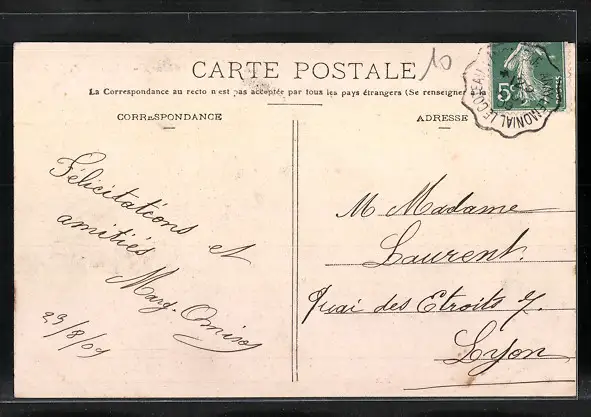 CARTE POSTALE
10
La Correspondance au recto n'est pas acceptée par tous les pays étrangers (Se renseigner à la
CORRESPONDANCE
ADRESSE
5c
LE COTEAU
Félicitations et
amitiés
Marg.
23/8/09
M Madame
Laurent.
Quai des Etroits 7.
Lyon